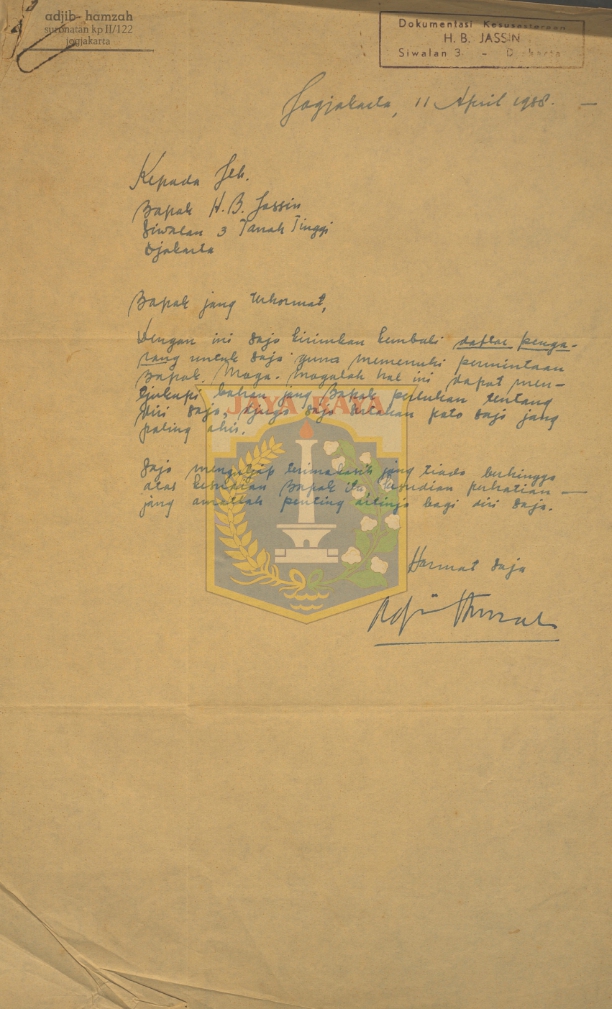 adjib- hamzah
suronatan kp II/122
jogjakarta
Dokumentasi Kesusasteraan
H. B. JASSIN
Siwalan 3 - Djakarta
Jogjakarta, 11 April 1958.
Kepada Jth.
Bapak H. B. Jassin
Siwalan 3 Tanah Tinggi
Djakarta
Bapak jang terhormat,
Dengan ini saja kirimkan kembali daftar penga-
rang untuk saja guna memenuhi permintaan
Bapak. Moga-mogalah hal ini dapat men-
tjukupi bahan jang Bapak perlukan tentang
diri saja, djuga saja sertakan poto saja jang
paling achir.
JAYA RAYA
Saja mengutjap terimakasih jang tiada berhingga
atas kesudian Bapak itu, kesudian perhatian
jang amatlah penting artinja bagi diri saja.
Hormat saja
Adjib Hamzah